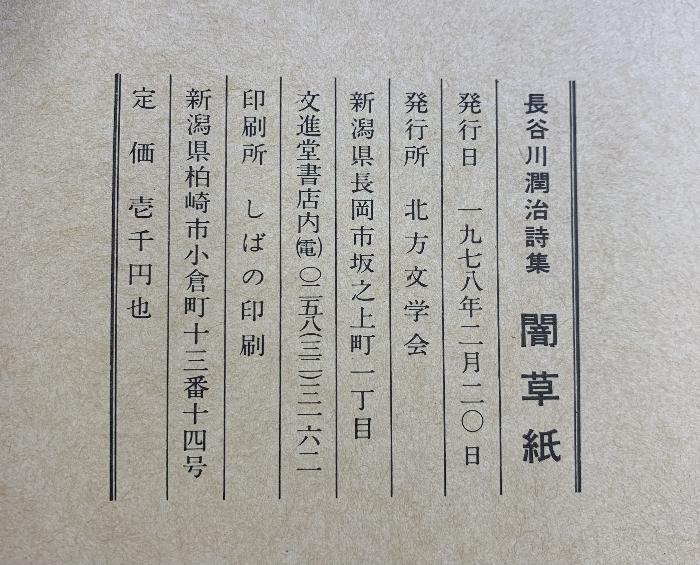 長谷川潤治詩集 闇草紙
発行日 一九七八年二月二〇日
発行所 北方文学会
新潟県長岡市坂之上町一丁目
文進堂書店内㈹〇二五八(三二)三一六二
印刷所 しばの印刷
新潟県柏崎市小倉町十三番十四号
定価 壱千円也